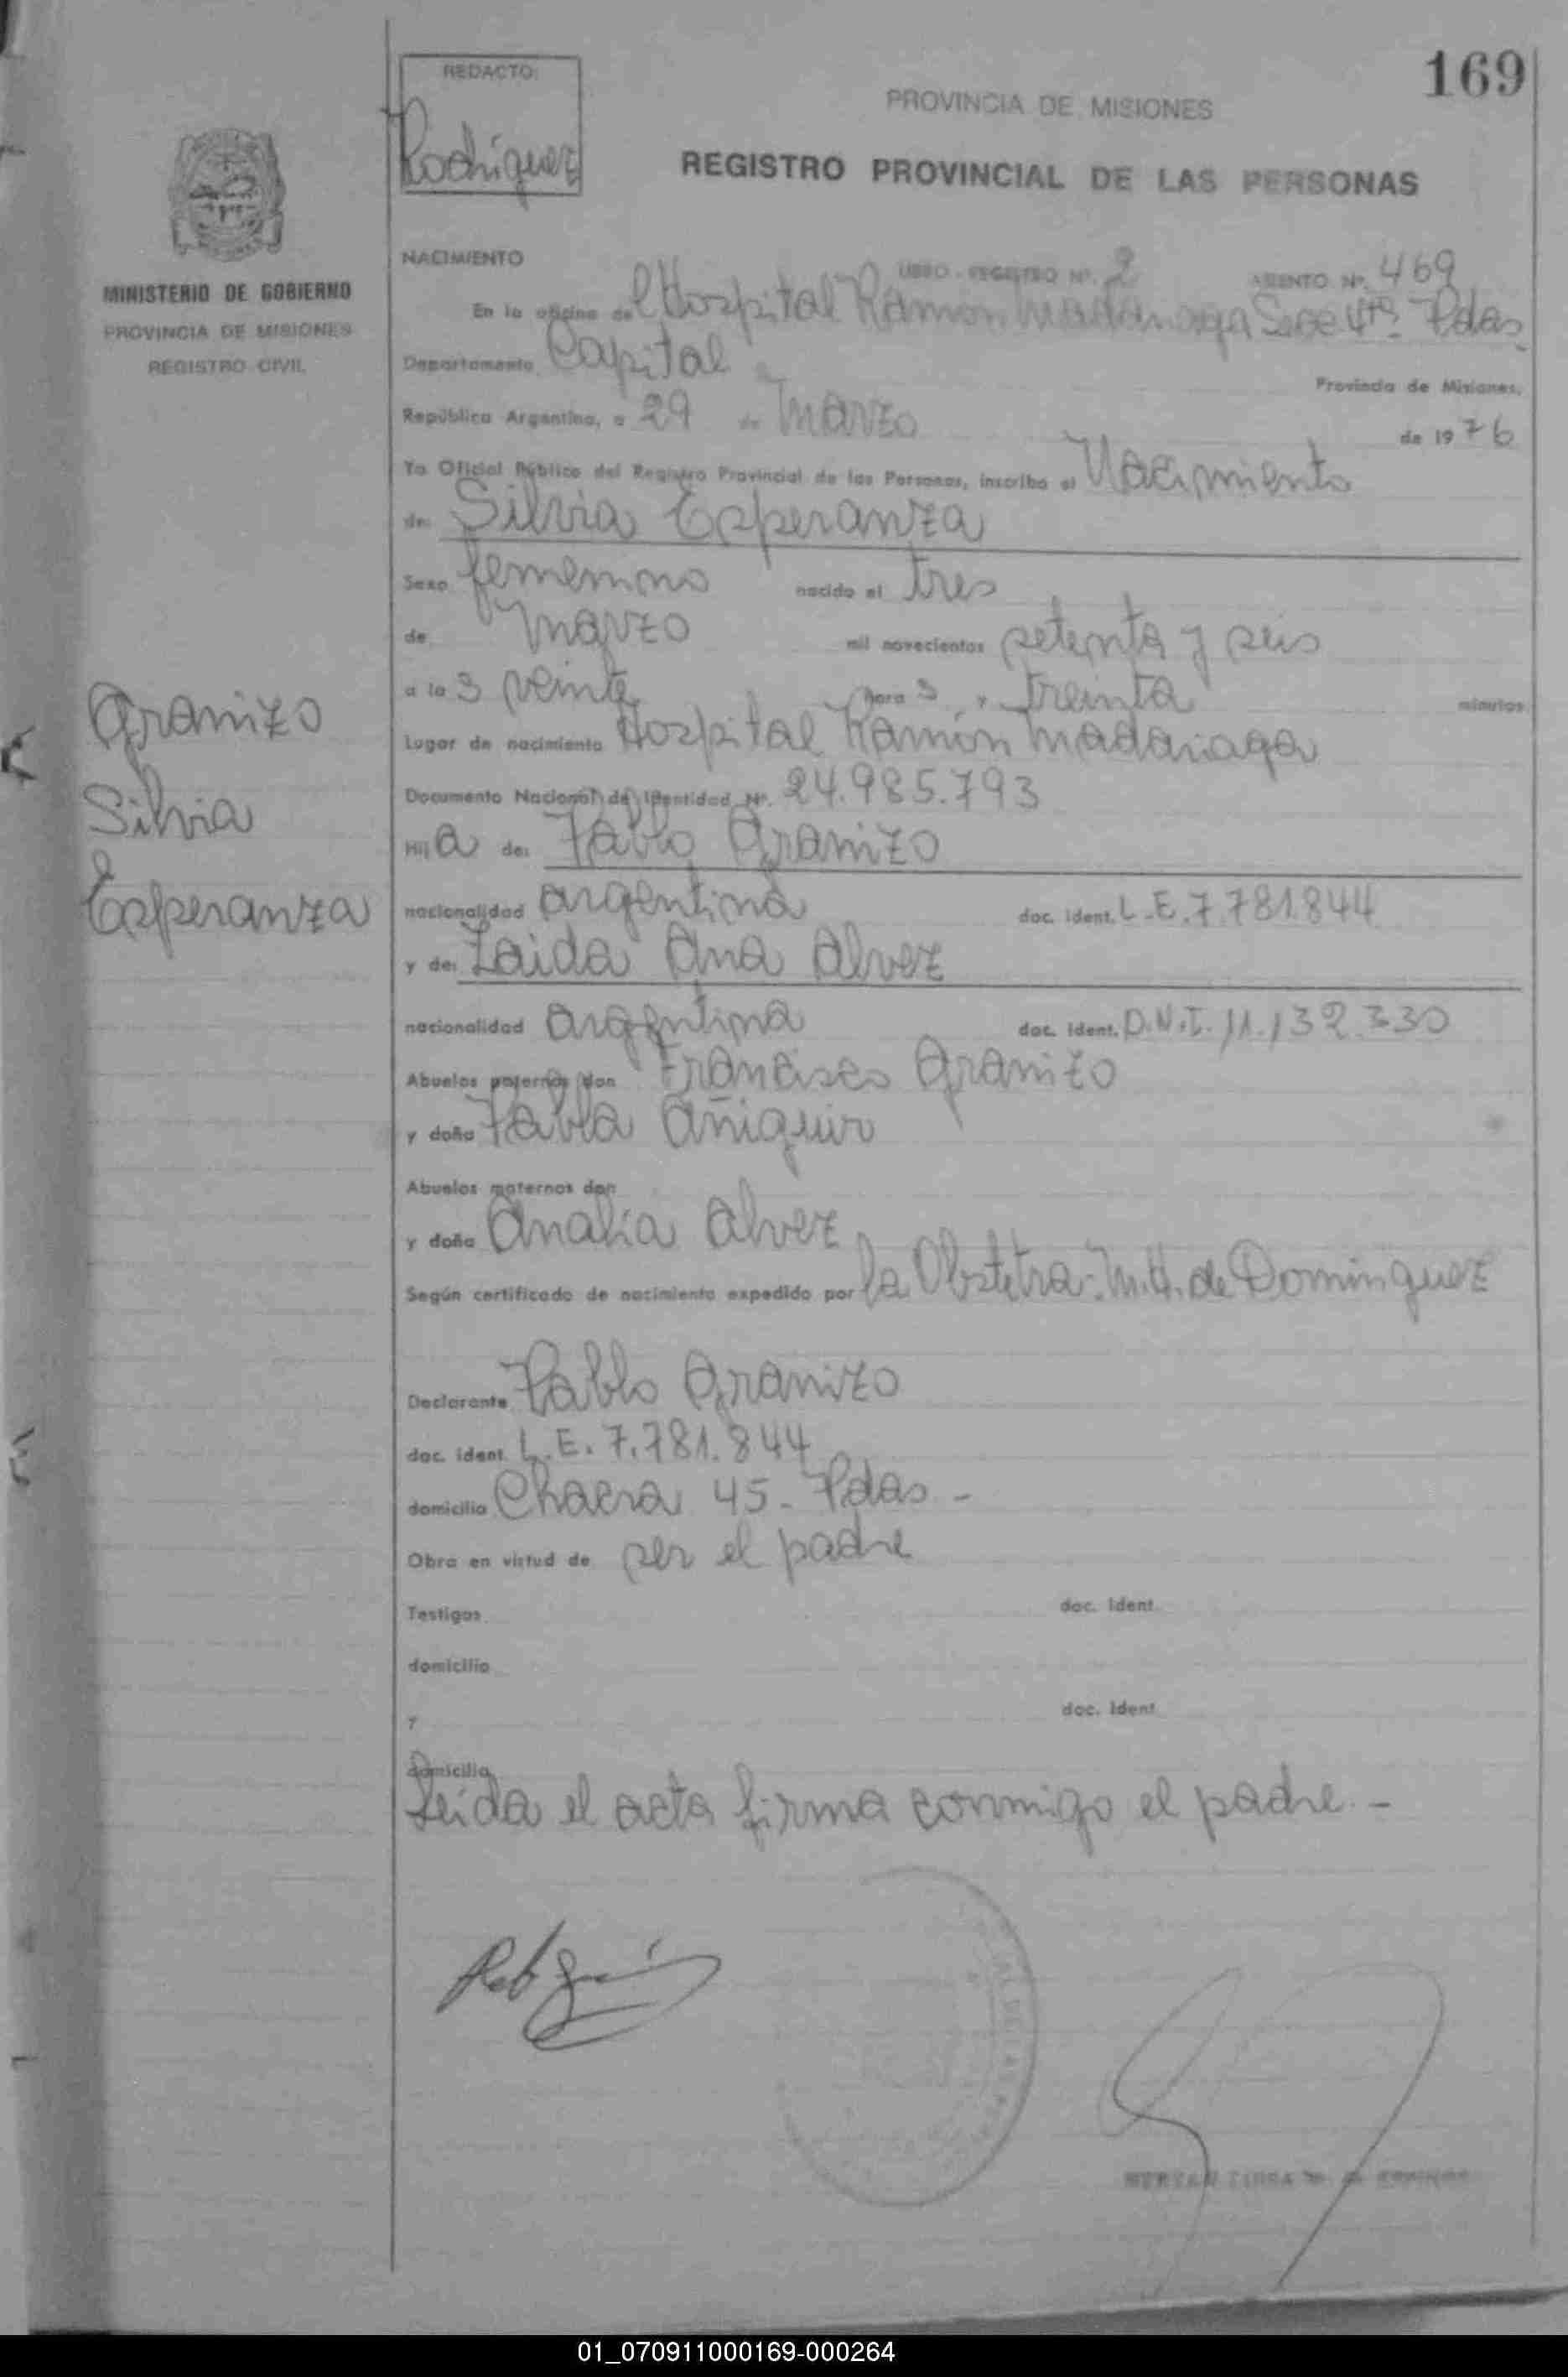 169
REDACTO:
Rodríguez
PROVINCIA DE MISIONES
REGISTRO PROVINCIAL DE LAS PERSONAS
MINISTERIO DE GOBIERNO
PROVINCIA DE MISIONES
REGISTRO CIVIL
NACIMIENTO LIBRO - REGISTRO Nº. 2 ASIENTO Nº. 469
En la oficina del Hospital Ramón Madariaga Secc 4ta Pdas
Departamento Capital Provincia de Misiones,
República Argentina, a 29 de Marzo de 1976
Yo Oficial Público del Registro Provincial de las Personas, inscribo el Nacimiento
de: Silvia Esperanza
Sexo femenino nacido el tres
de Marzo mil novecientos setenta y seis
a las veinte horas y treinta minutos
Lugar de nacimiento Hospital Ramón Madariaga
Documento Nacional de Identidad Nº. 24.985.793
Hija de: Pablo Granizo
nacionalidad argentina doc. ident. L.E.7.781.844
y de: Zaida Ana Alvez
nacionalidad argentina doc. ident. D.N.I. 11.132.330
Abuelos paternos don Francisco Granizo
y doña Pabla Añiguir
Abuelos maternos don
y doña Analía Alvez
Según certificado de nacimiento expedido por la Obstetra: M.H. de Dominguez
Granizo
Silvia
Esperanza
Declarante Pablo Granizo
doc. ident. L.E. 7.781.844
domicilio Chacra 45 - Pdas -
Obra en virtud de ser el padre
Testigos doc. ident.
domicilio
y doc. ident.
domicilio
Leída el acta firma conmigo el padre. -
01_070911000169-000264